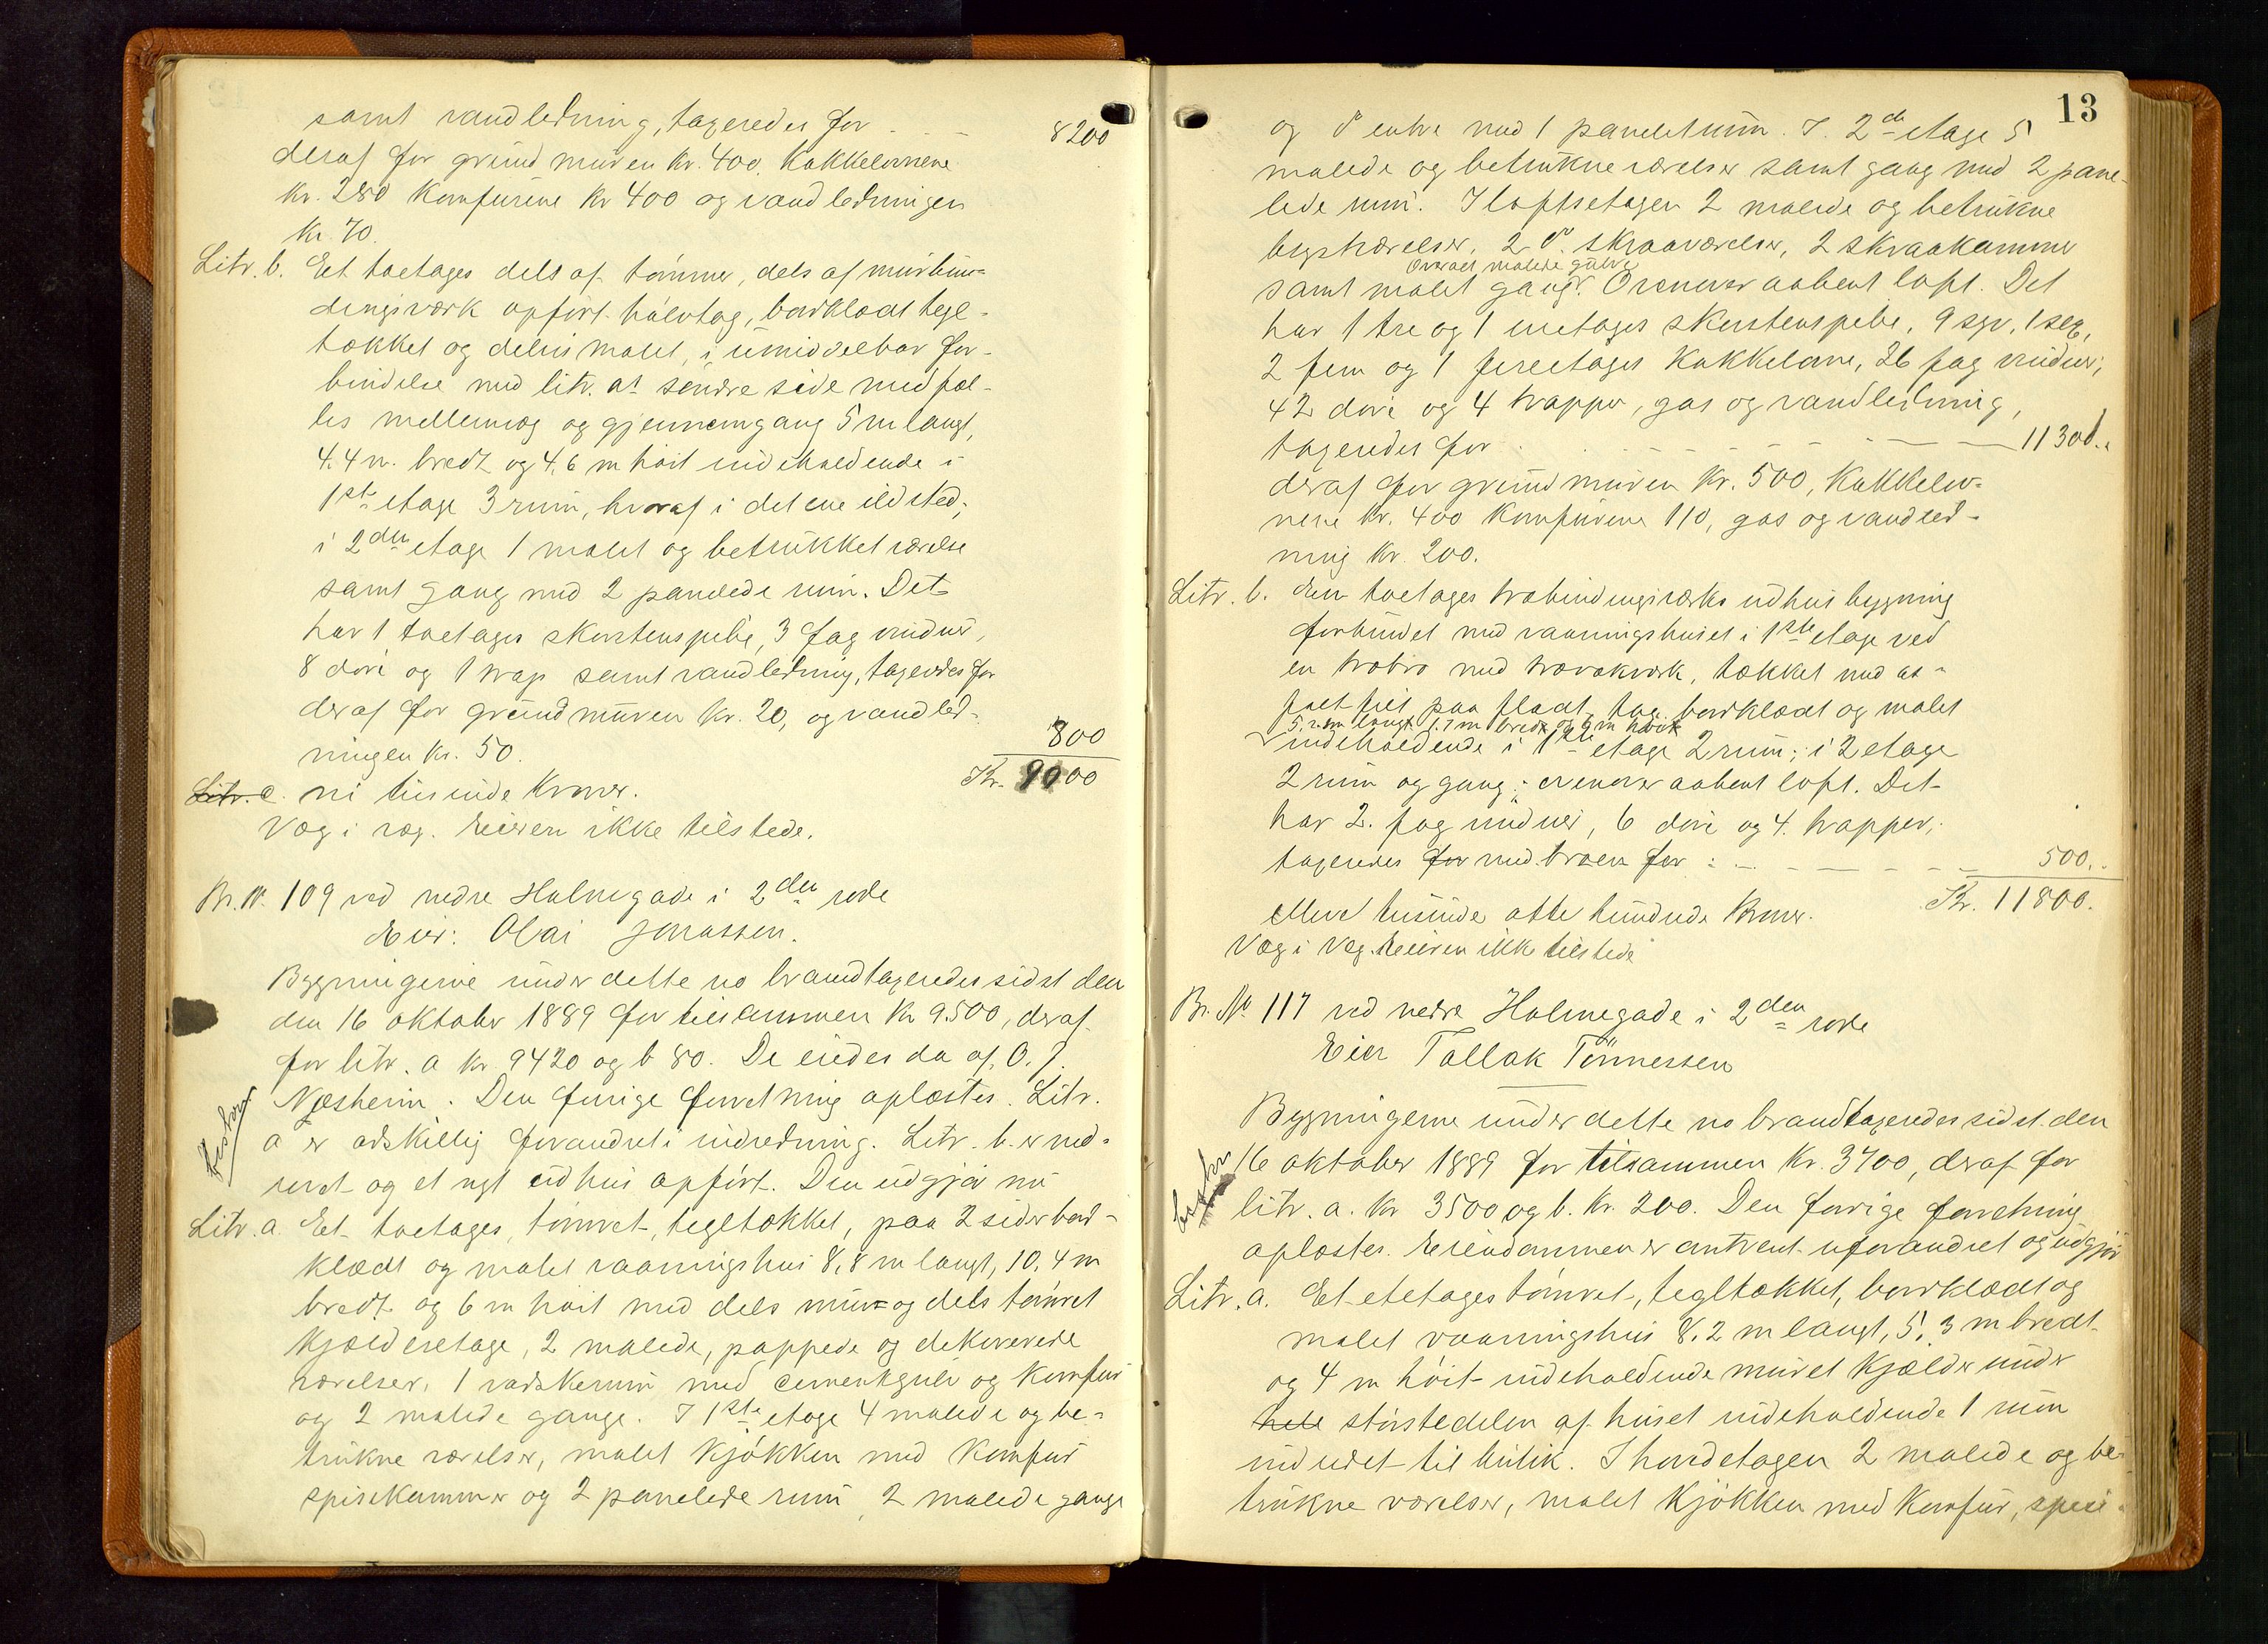 samt vandledning, taxeredes for . . — 8200
deraf for grundmuren kr. 400. Kakkelovnene
kr. 280 Komfurene kr 400 og vandledningen
kr. 70.
Litr. b. Eet toetages dels af tømmer, dels af murbin-
dingsværk opført halvtag, bordklædt tegl-
tækket og delvis malet, i umiddelbar for-
bindelse med litr. a's søndre side med fæl-
les mellemvæg og gjennemgang 5 m langt,
4.4 m. bredt og 4,6 m høit indeholdende i
1ste etage 3 rum, hvoraf i det ene ildsted;
i 2den etage 1 malet og betrukket værelse
samt gang med 2 panelede rum. Det
har 1 toetages skorstenspibe, 3 fag vinduer,
8 døre og 1 trap samt vandledning, taxeredes for
deraf for grundmuren kr. 20, og vandled-
ningen kr. 50. 800
Litr. c. ni tusinde kroner. Kr. 9000
Væg i væg. Eieren ikke tilstede.
Br. No. 109 ved nedre Holmegade i 2den rode
Eier: Olai Jonassen.
Bygningerne under dette no brandtaxeredes sidst den
den 16 oktober 1889 for tilsammen kr 9500, deraf
for litr. a kr 9420 og b 80. De eiedes da af O. J.
Næsheim. Den forrige forretning oplæstes. Litr.
a er adskillig forandret i indredning. Litr. b. er ned-
revet og et nyt udhus opført. Den udgjør nu
Litr. a. Et toetages, tømret, tegltækket, paa 2 sider bord-
klædt og malet vaaningshus 8,8 m langt, 10,4 m
bredt og 6 m høit med dels mur og dels tømret
kjælderetage, 2 malede, pappede og dekorerede
værelser, 1 vadskerum med cementgulv og komfur
og 2 malede gange. I 1ste etage 4 malede og be-
trukne værelser, malet kjøkken med komfur
spisekammer og 2 panelede rum, 2 malede gange
13
og do entre med 1 panelet rum. I 2den etage 5
malede og betrukne værelser samt gang med 2 pane-
lede rum. I loftsetagen 2 malede og betrukne
kvistværelser, 2 do. skraaværelser, 2 skraakammer
Overalt malede gulve
samt malet gang. Ovenover aabent loft. Det
har 1 tre og 1 enetages skorstenspibe, 9 syv, 1 sex,
2 fem og 1 fireetages kakkelovne, 36 fag vinduer,
42 døre og 4 trapper, gas og vandledning,
taxeredes for . . — — — 11300..
deraf for grundmuren kr. 500, kakkelov-
nene kr. 400 komfurene 110, gas og vandled-
ning kr. 200.
Litr. b. Een toetages træbindingsværks udhusbygning
forbundet med vaaningshuset i 1ste etage ved
en træbro med trærækværk, tækket med as-
faltfilt paa fladt tag. bordklædt og malet
5.2 m langt 1.7 m bredt og 4 m høit
indeholdende i 1ste etage 2 rum; i 2 etage
2 rum og gang; ovenover aabent loft. Det
har 2. fag vinduer, 6 døre og 4. trapper;
taxeredes for med broen for : — — — 500..
elleve tusinde otte hundrede kroner. Kr. 11800.
Væg i væg. Eieren ikke tilstede
Br. No 117 ved nedre Holmegade i 2den rode
Eier Tallak Tønnessen
Bygningerne under dette no brandtaxeredes sidst den
16 oktober 1889 for tilsammen kr. 3700, deraf for
litr. a. kr 3500 og b. kr. 200. Den forrige forretning
oplæstes. Eiendommen er omtrent uforandret og udgjør
Litr. a. Et etetages tømret, tegltækket, bordklædt og
malet vaaningshus 8,2 m langt, 5,3 m bredt
og 4 m høit indeholdende muret kjælder under
hele størstedelen af huset indeholdende 1 rum
indredet til butik. I hovedetagen 2 malede og be-
trukne værelser, malet kjøkken med komfur, spise-